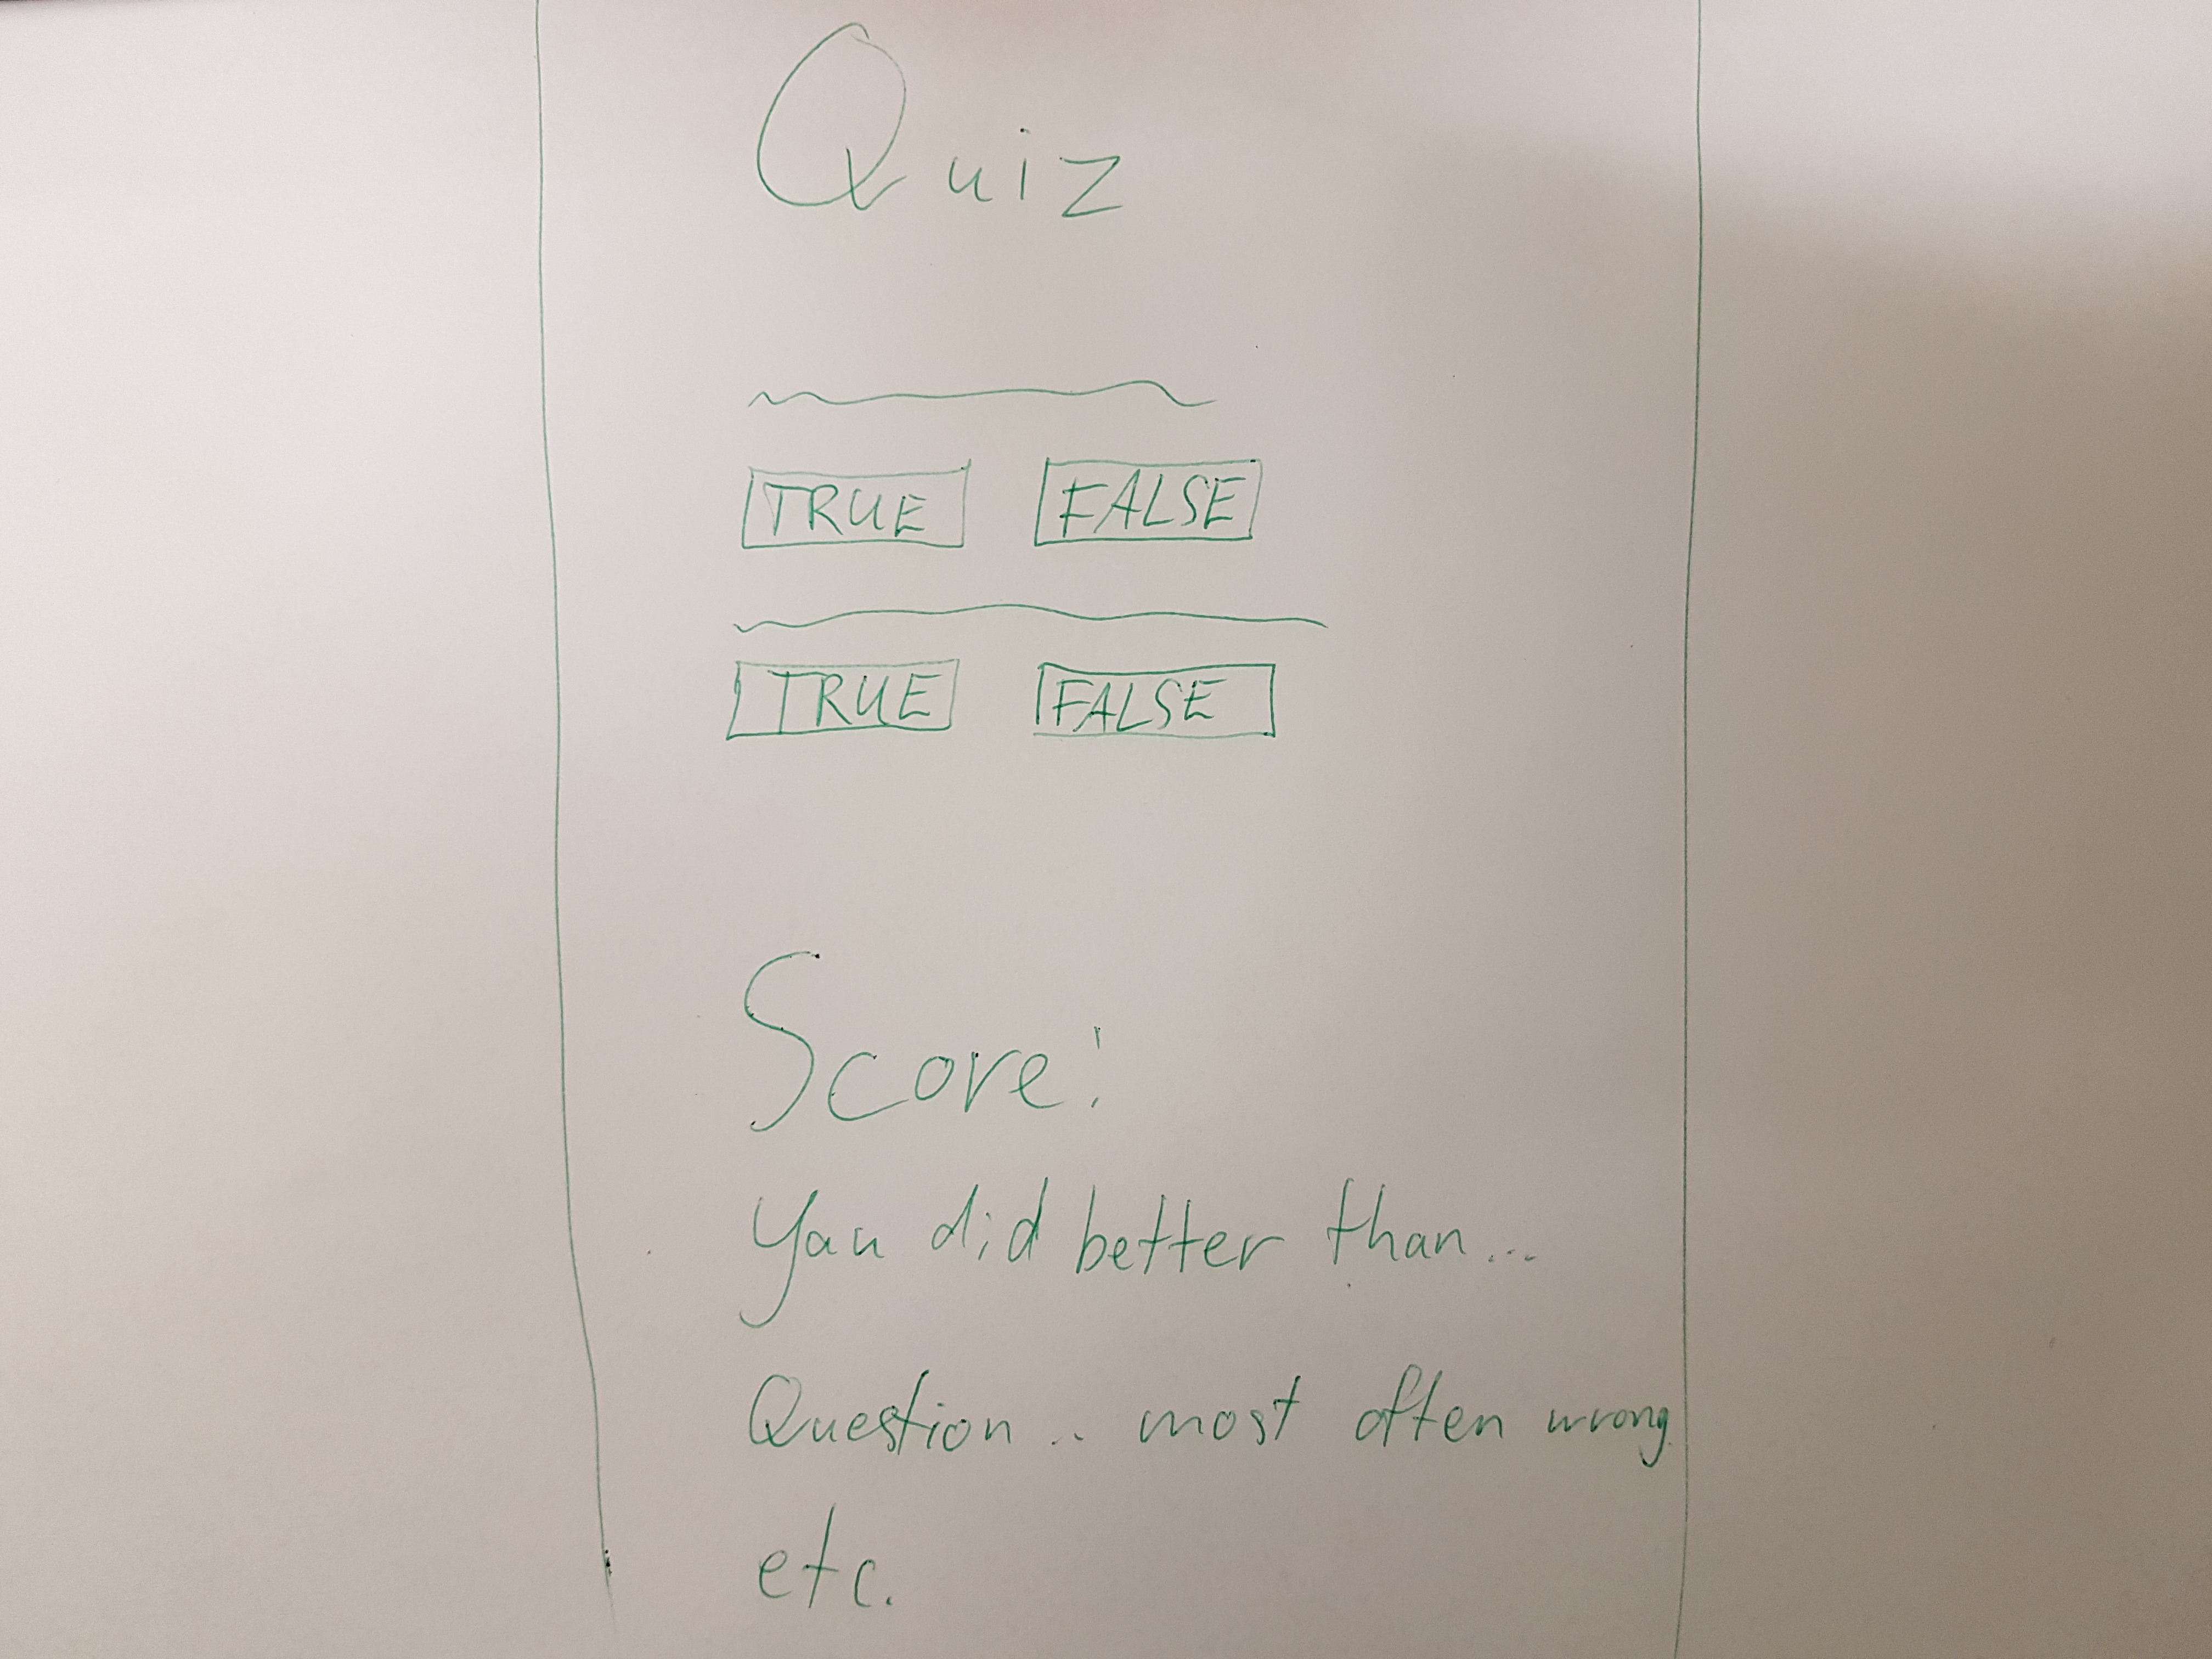 Quiz
TRUE FALSE
TRUE FALSE
Score:
You did better than...
Question... most often wrong
etc.